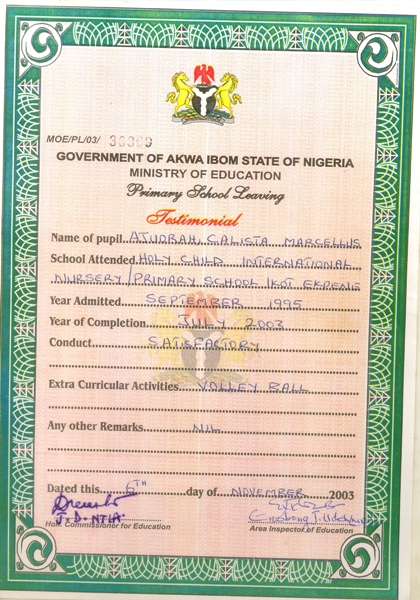 MOE/PL/03/
GOVERNMENT OF AKWA IBOM STATE OF NIGERIA
MINISTRY OF EDUCATION
Primary School Leaving
Testimonial
Name of pupil ATUORAH, CALISTA MARCELLUS
School Attended HOLY CHILD INTERNATIONAL
NURSERY/PRIMARY SCHOOL IKOT EKPENE
Year Admitted SEPTEMBER 1995
Year of Completion JULY 2003
Conduct SATISFACTORY
Extra Curricular Activities VOLLEY BALL
Any other Remarks NIL
Dated this 6TH day of NOVEMBER 2003
Hon. Commissioner for Education Area Inspector of Education